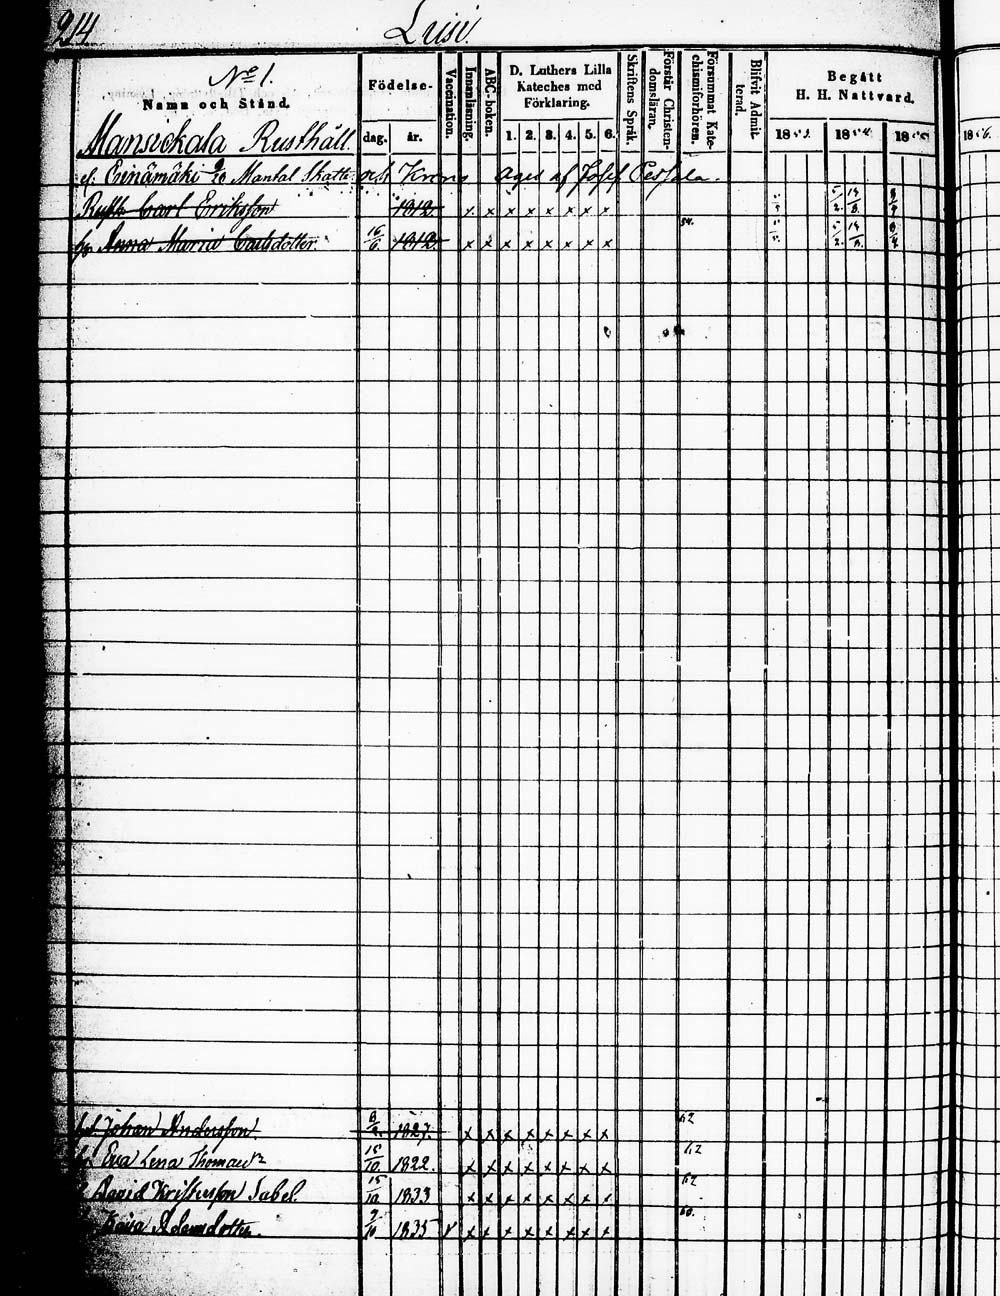 214
Luisi.
No 1.
Namn och Stånd.
Födelse-
dag. år.
Vaccination.
Innanläsning.
ABC-boken.
D. Luthers Lilla
Kateches med
Förklaring.
1. 2. 3. 4. 5. 6.
Skriftens Språk.
Förstår Christen-
domsläran.
Försummat Kate-
chismiförhören.
Blifvit Admit-
terad.
Begått
H. H. Nattvard.
1853. 1854. 1855. 1856.
Rusthåll.
Einämäki Mantal Skatte och Krono äges af Josef
Rusth. Carl Eriksson 1812 x x x x x x x x
hu Anna Maria Carlsdotter 16/6 1812 x x x x x x x x 54.
Johan Andersson 1827. x x x x x x x x 62
Eva Lena 15/10 1822. x x x x x x x x 62
David Sabel. 15/12 1833 x x x x x x x x 62
Kaisa Adamsdotter. 9/10 1835 v x x x x x x x x 60.